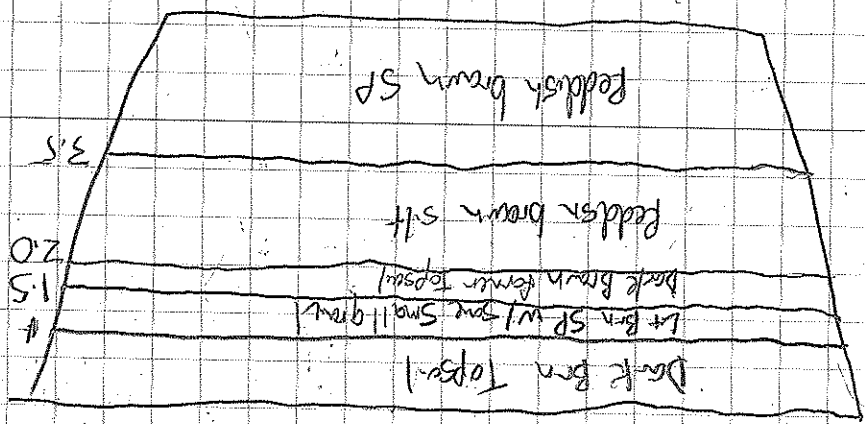 Dark Brn Topsoil
1
Lt Brn SP w/ Some Small gravel
1.5
Dark Brown Former Topsoil
2.0
Reddish brown silt
3.5
Reddish brown SP